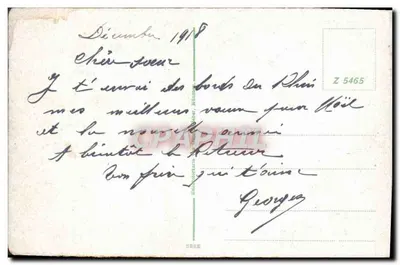 Décembre 1918
chère soeur
Z 5465
J t'envoi des bords du Rhin
mes meilleurs voeux pour Noël
et la nouvelle année
A bientôt le Retour
ton frère qui t'aime
Georges